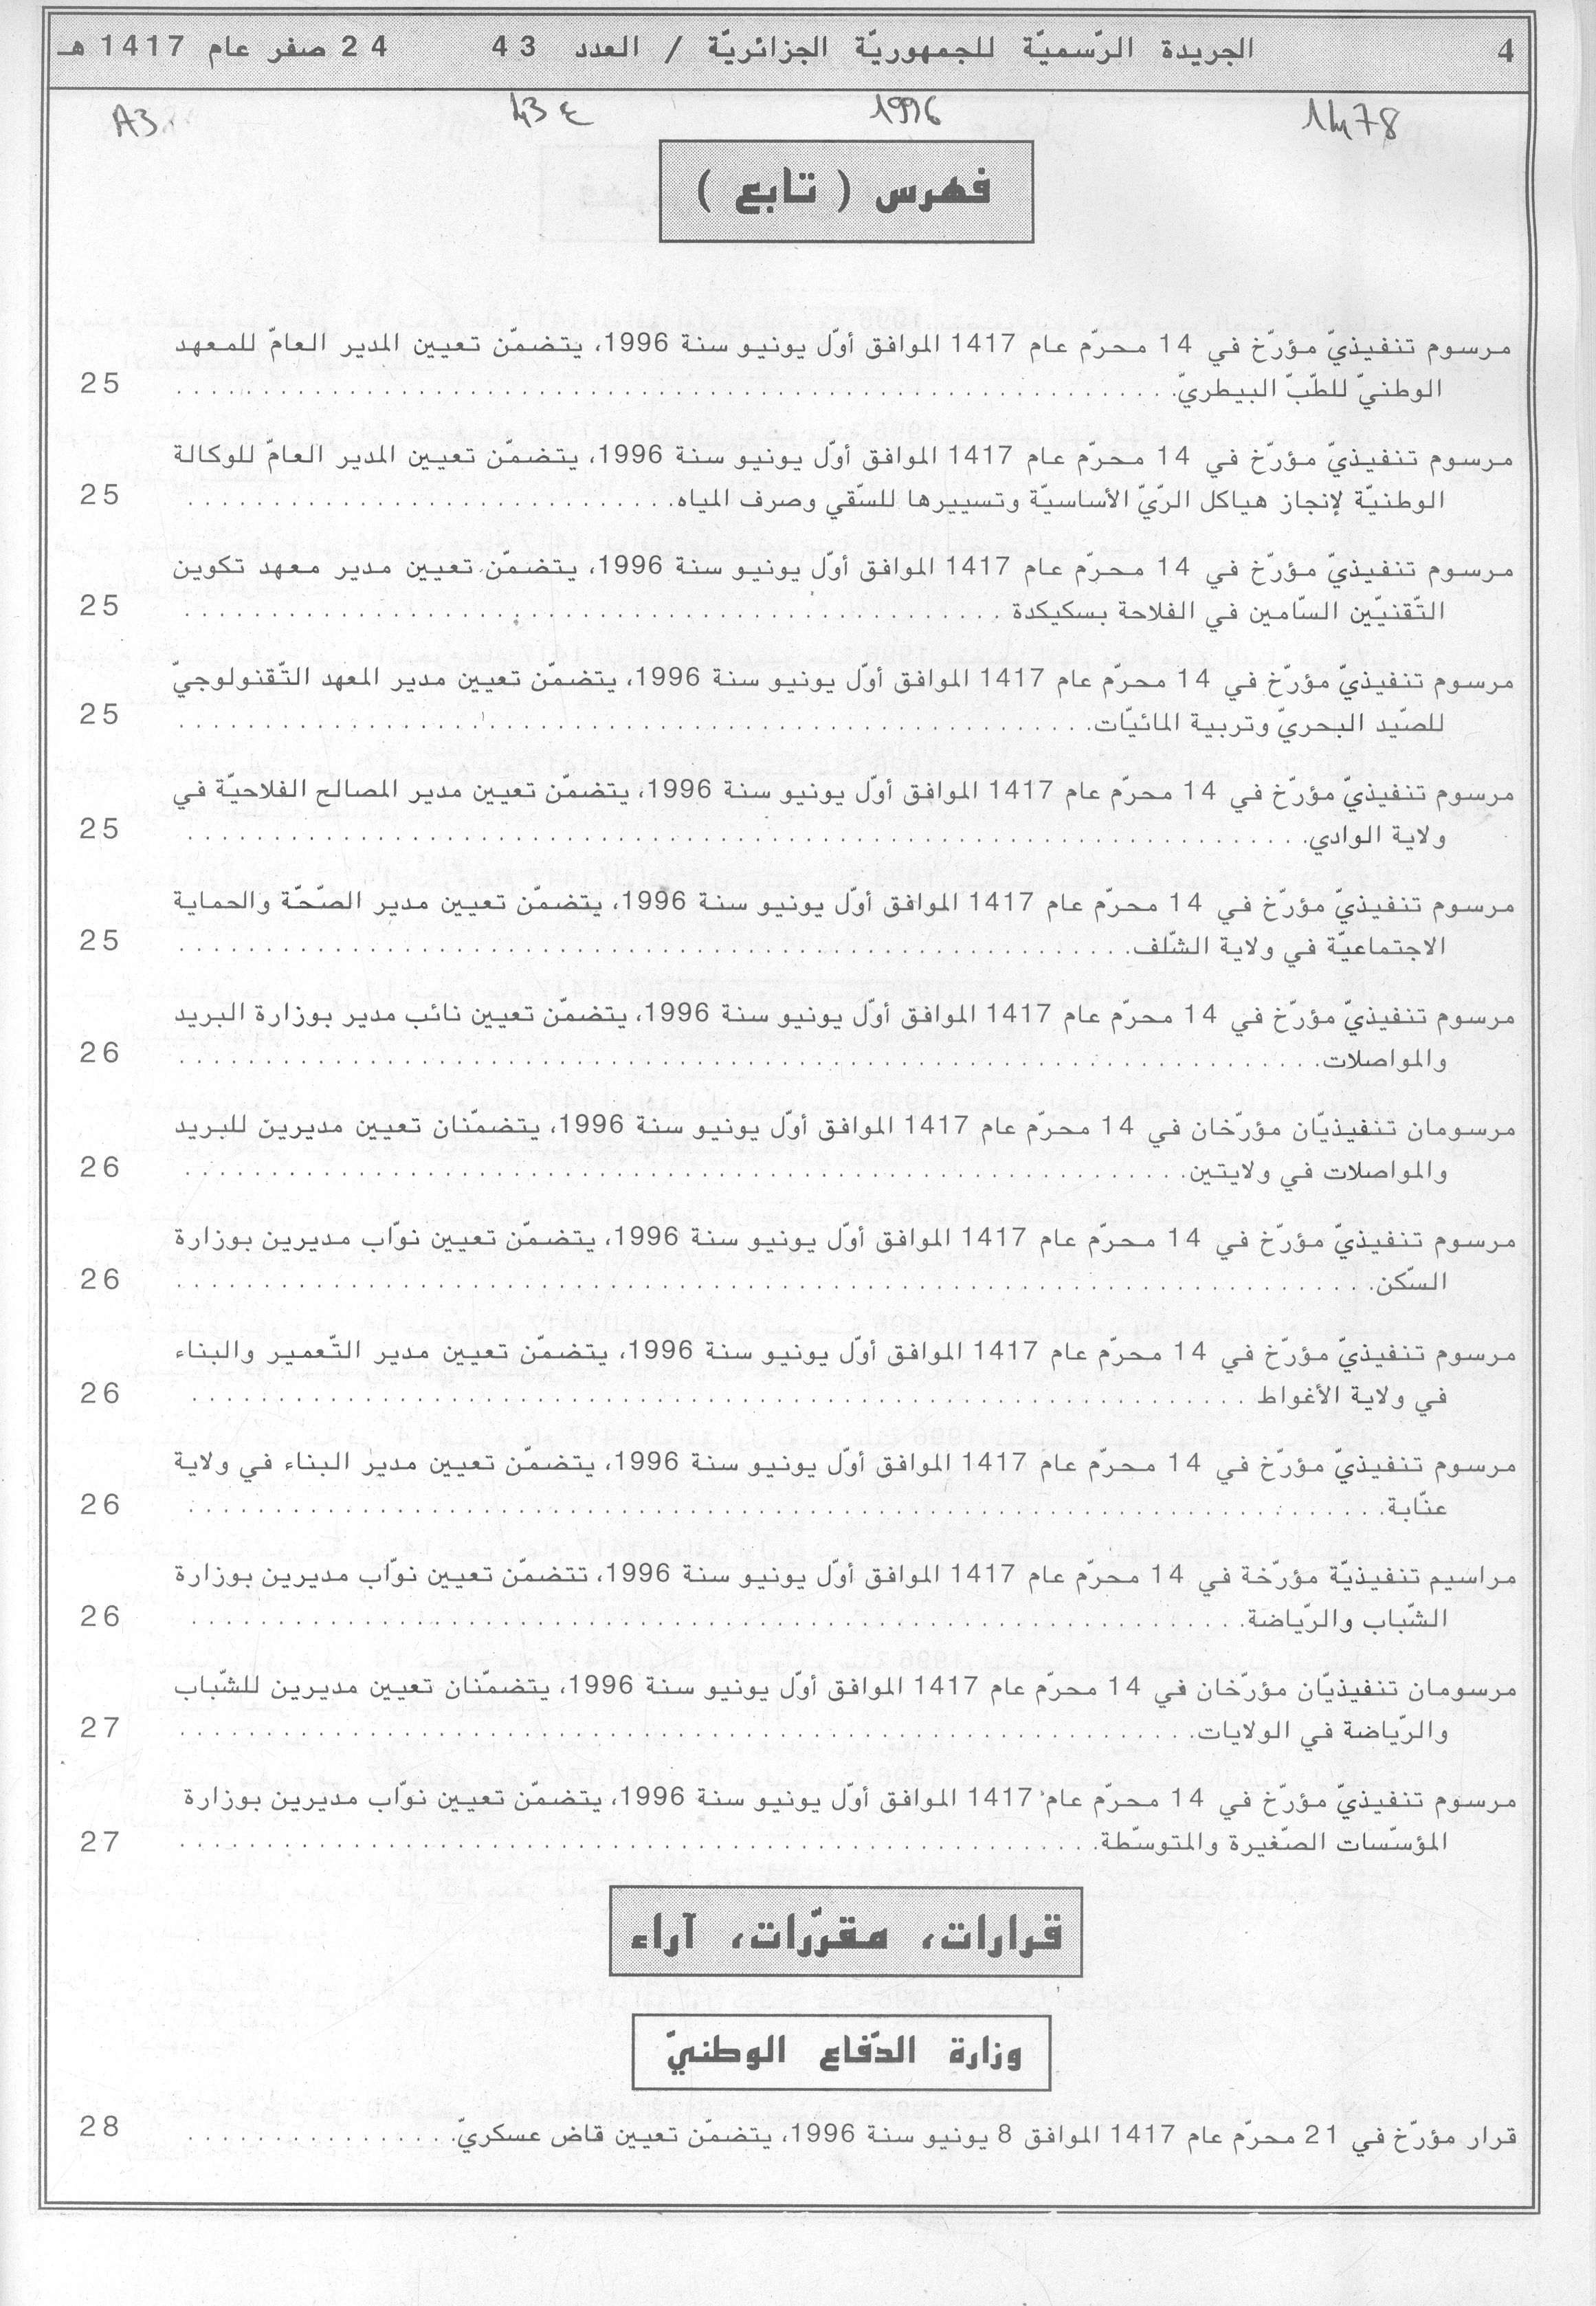 4 الجريدة الرّسميّة للجمهوريّة الجزائريّة / العدد 43 24 صفر عام 1417 هـ
1478 1996 43 ع A3
فهرس ( تابع )
مرسوم تنفيذيّ مؤرّخ في 14 محرّم عام 1417 الموافق أوّل يونيو سنة 1996، يتضمّن تعيين المدير العامّ للمعهد
الوطنيّ للطّبّ البيطريّ. 25
مرسوم تنفيذيّ مؤرّخ في 14 محرّم عام 1417 الموافق أوّل يونيو سنة 1996، يتضمّن تعيين المدير العامّ للوكالة
الوطنيّة لإنجاز هياكل الرّيّ الأساسيّة وتسييرها للسّقي وصرف المياه. 25
مرسوم تنفيذيّ مؤرّخ في 14 محرّم عام 1417 الموافق أوّل يونيو سنة 1996، يتضمّن تعيين مدير معهد تكوين
التّقنيّين السّامين في الفلاحة بسكيكدة 25
مرسوم تنفيذيّ مؤرّخ في 14 محرّم عام 1417 الموافق أوّل يونيو سنة 1996، يتضمّن تعيين مدير المعهد التّقنولوجيّ
للصّيد البحريّ وتربية المائيّات. 25
مرسوم تنفيذيّ مؤرّخ في 14 محرّم عام 1417 الموافق أوّل يونيو سنة 1996، يتضمّن تعيين مدير المصالح الفلاحيّة في
ولاية الوادي. 25
مرسوم تنفيذيّ مؤرّخ في 14 محرّم عام 1417 الموافق أوّل يونيو سنة 1996، يتضمّن تعيين مدير الصّحّة والحماية
الاجتماعيّة في ولاية الشّلف. 25
مرسوم تنفيذيّ مؤرّخ في 14 محرّم عام 1417 الموافق أوّل يونيو سنة 1996، يتضمّن تعيين نائب مدير بوزارة البريد
والمواصلات. 26
مرسومان تنفيذيّان مؤرّخان في 14 محرّم عام 1417 الموافق أوّل يونيو سنة 1996، يتضمّنان تعيين مديرين للبريد
والمواصلات في ولايتين. 26
مرسوم تنفيذيّ مؤرّخ في 14 محرّم عام 1417 الموافق أوّل يونيو سنة 1996، يتضمّن تعيين نوّاب مديرين بوزارة
السّكن. 26
مرسوم تنفيذيّ مؤرّخ في 14 محرّم عام 1417 الموافق أوّل يونيو سنة 1996، يتضمّن تعيين مدير التّعمير والبناء
في ولاية الأغواط 26
مرسوم تنفيذيّ مؤرّخ في 14 محرّم عام 1417 الموافق أوّل يونيو سنة 1996، يتضمّن تعيين مدير البناء في ولاية
عنّابة. 26
مراسيم تنفيذيّة مؤرّخة في 14 محرّم عام 1417 الموافق أوّل يونيو سنة 1996، تتضمّن تعيين نوّاب مديرين بوزارة
الشّباب والرّياضة. 26
مرسومان تنفيذيّان مؤرّخان في 14 محرّم عام 1417 الموافق أوّل يونيو سنة 1996، يتضمّنان تعيين مديرين للشّباب
والرّياضة في الولايات. 27
مرسوم تنفيذيّ مؤرّخ في 14 محرّم عام 1417 الموافق أوّل يونيو سنة 1996، يتضمّن تعيين نوّاب مديرين بوزارة
المؤسّسات الصّغيرة والمتوسّطة. 27
قرارات، مقرّرات، آراء
وزارة الدّفاع الوطنيّ
قرار مؤرّخ في 21 محرّم عام 1417 الموافق 8 يونيو سنة 1996، يتضمّن تعيين قاض عسكريّ. 28